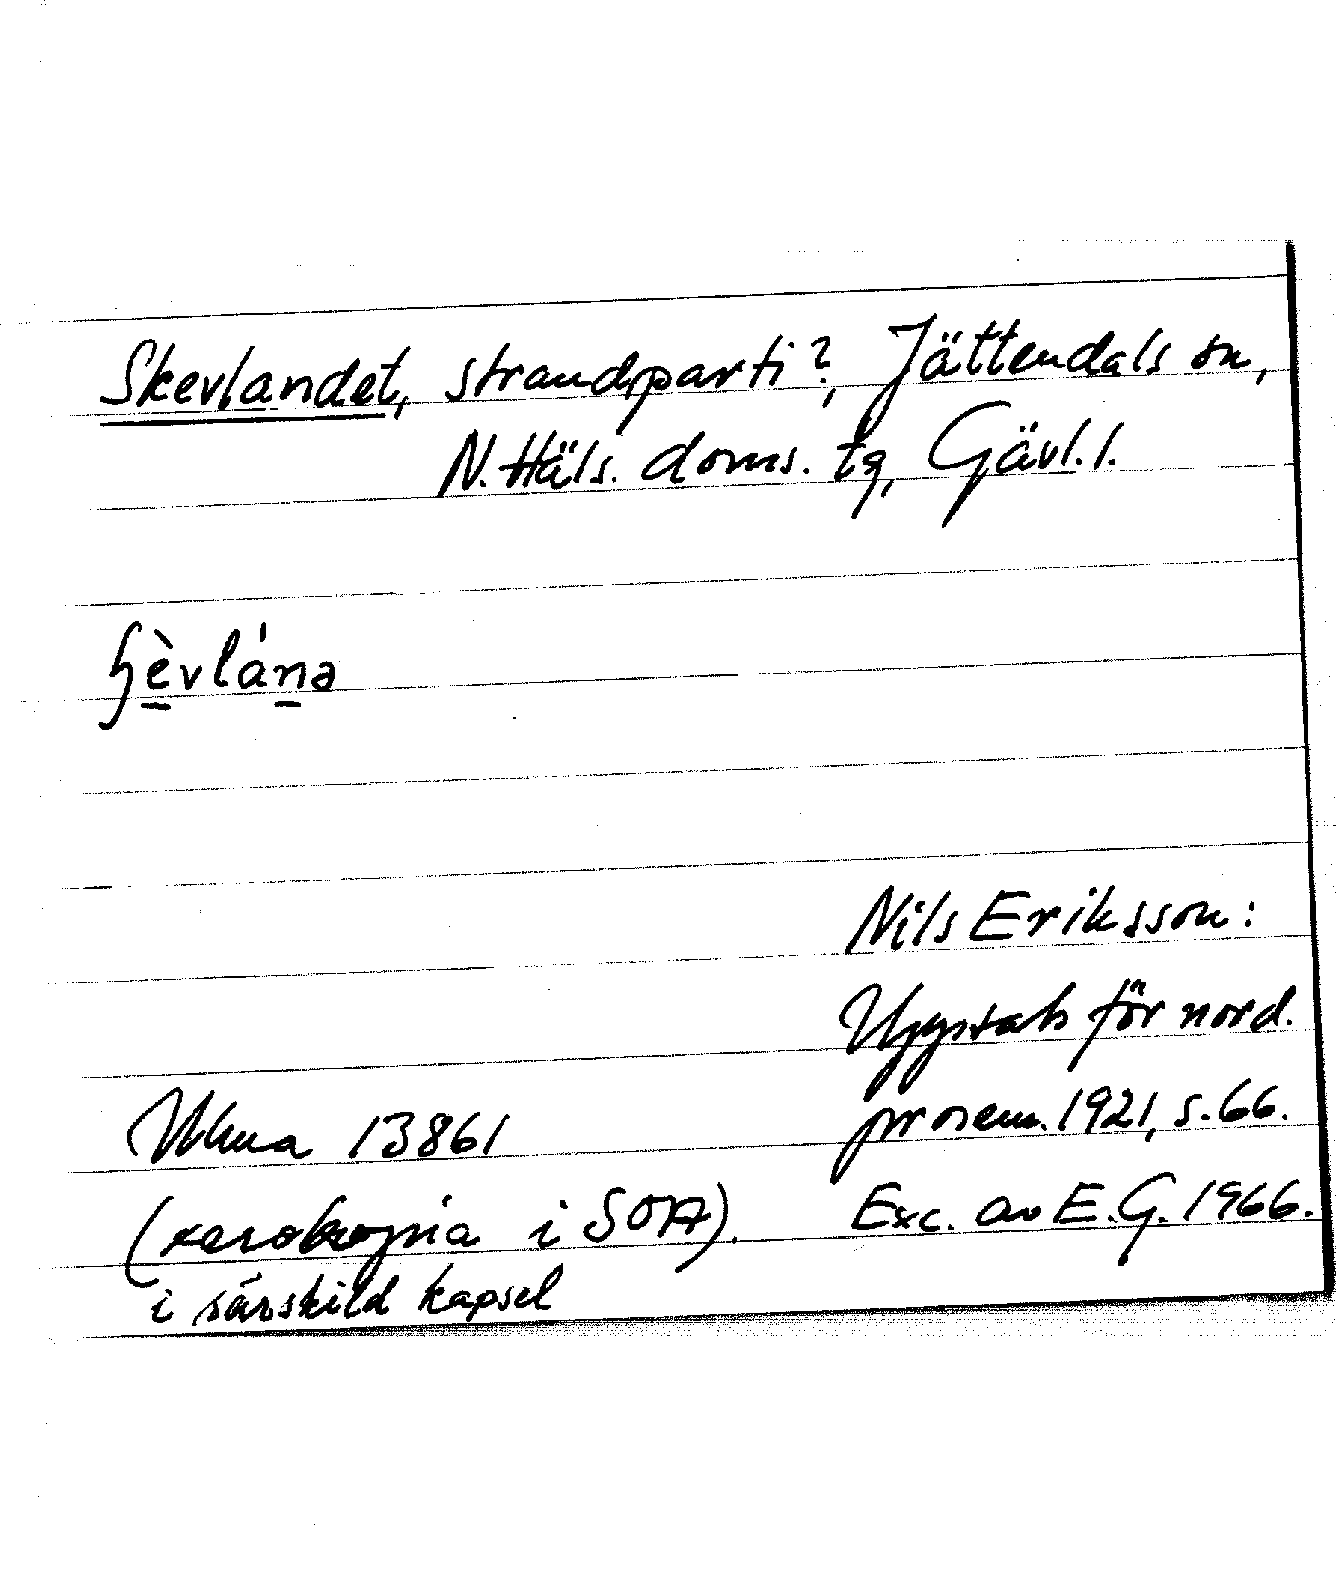 Skevlandet, strandparti?, Jättendals sn,
N. Häls. doms. tg, Gävl. l.
ɧèvláṉə
Nils Eriksson:
Uppsats för nord.
prosem. 1921, s. 66.
Ulma 13861
(xerokopia i SOA).
Exc. av E.G. 1966.
i särskild kapsel